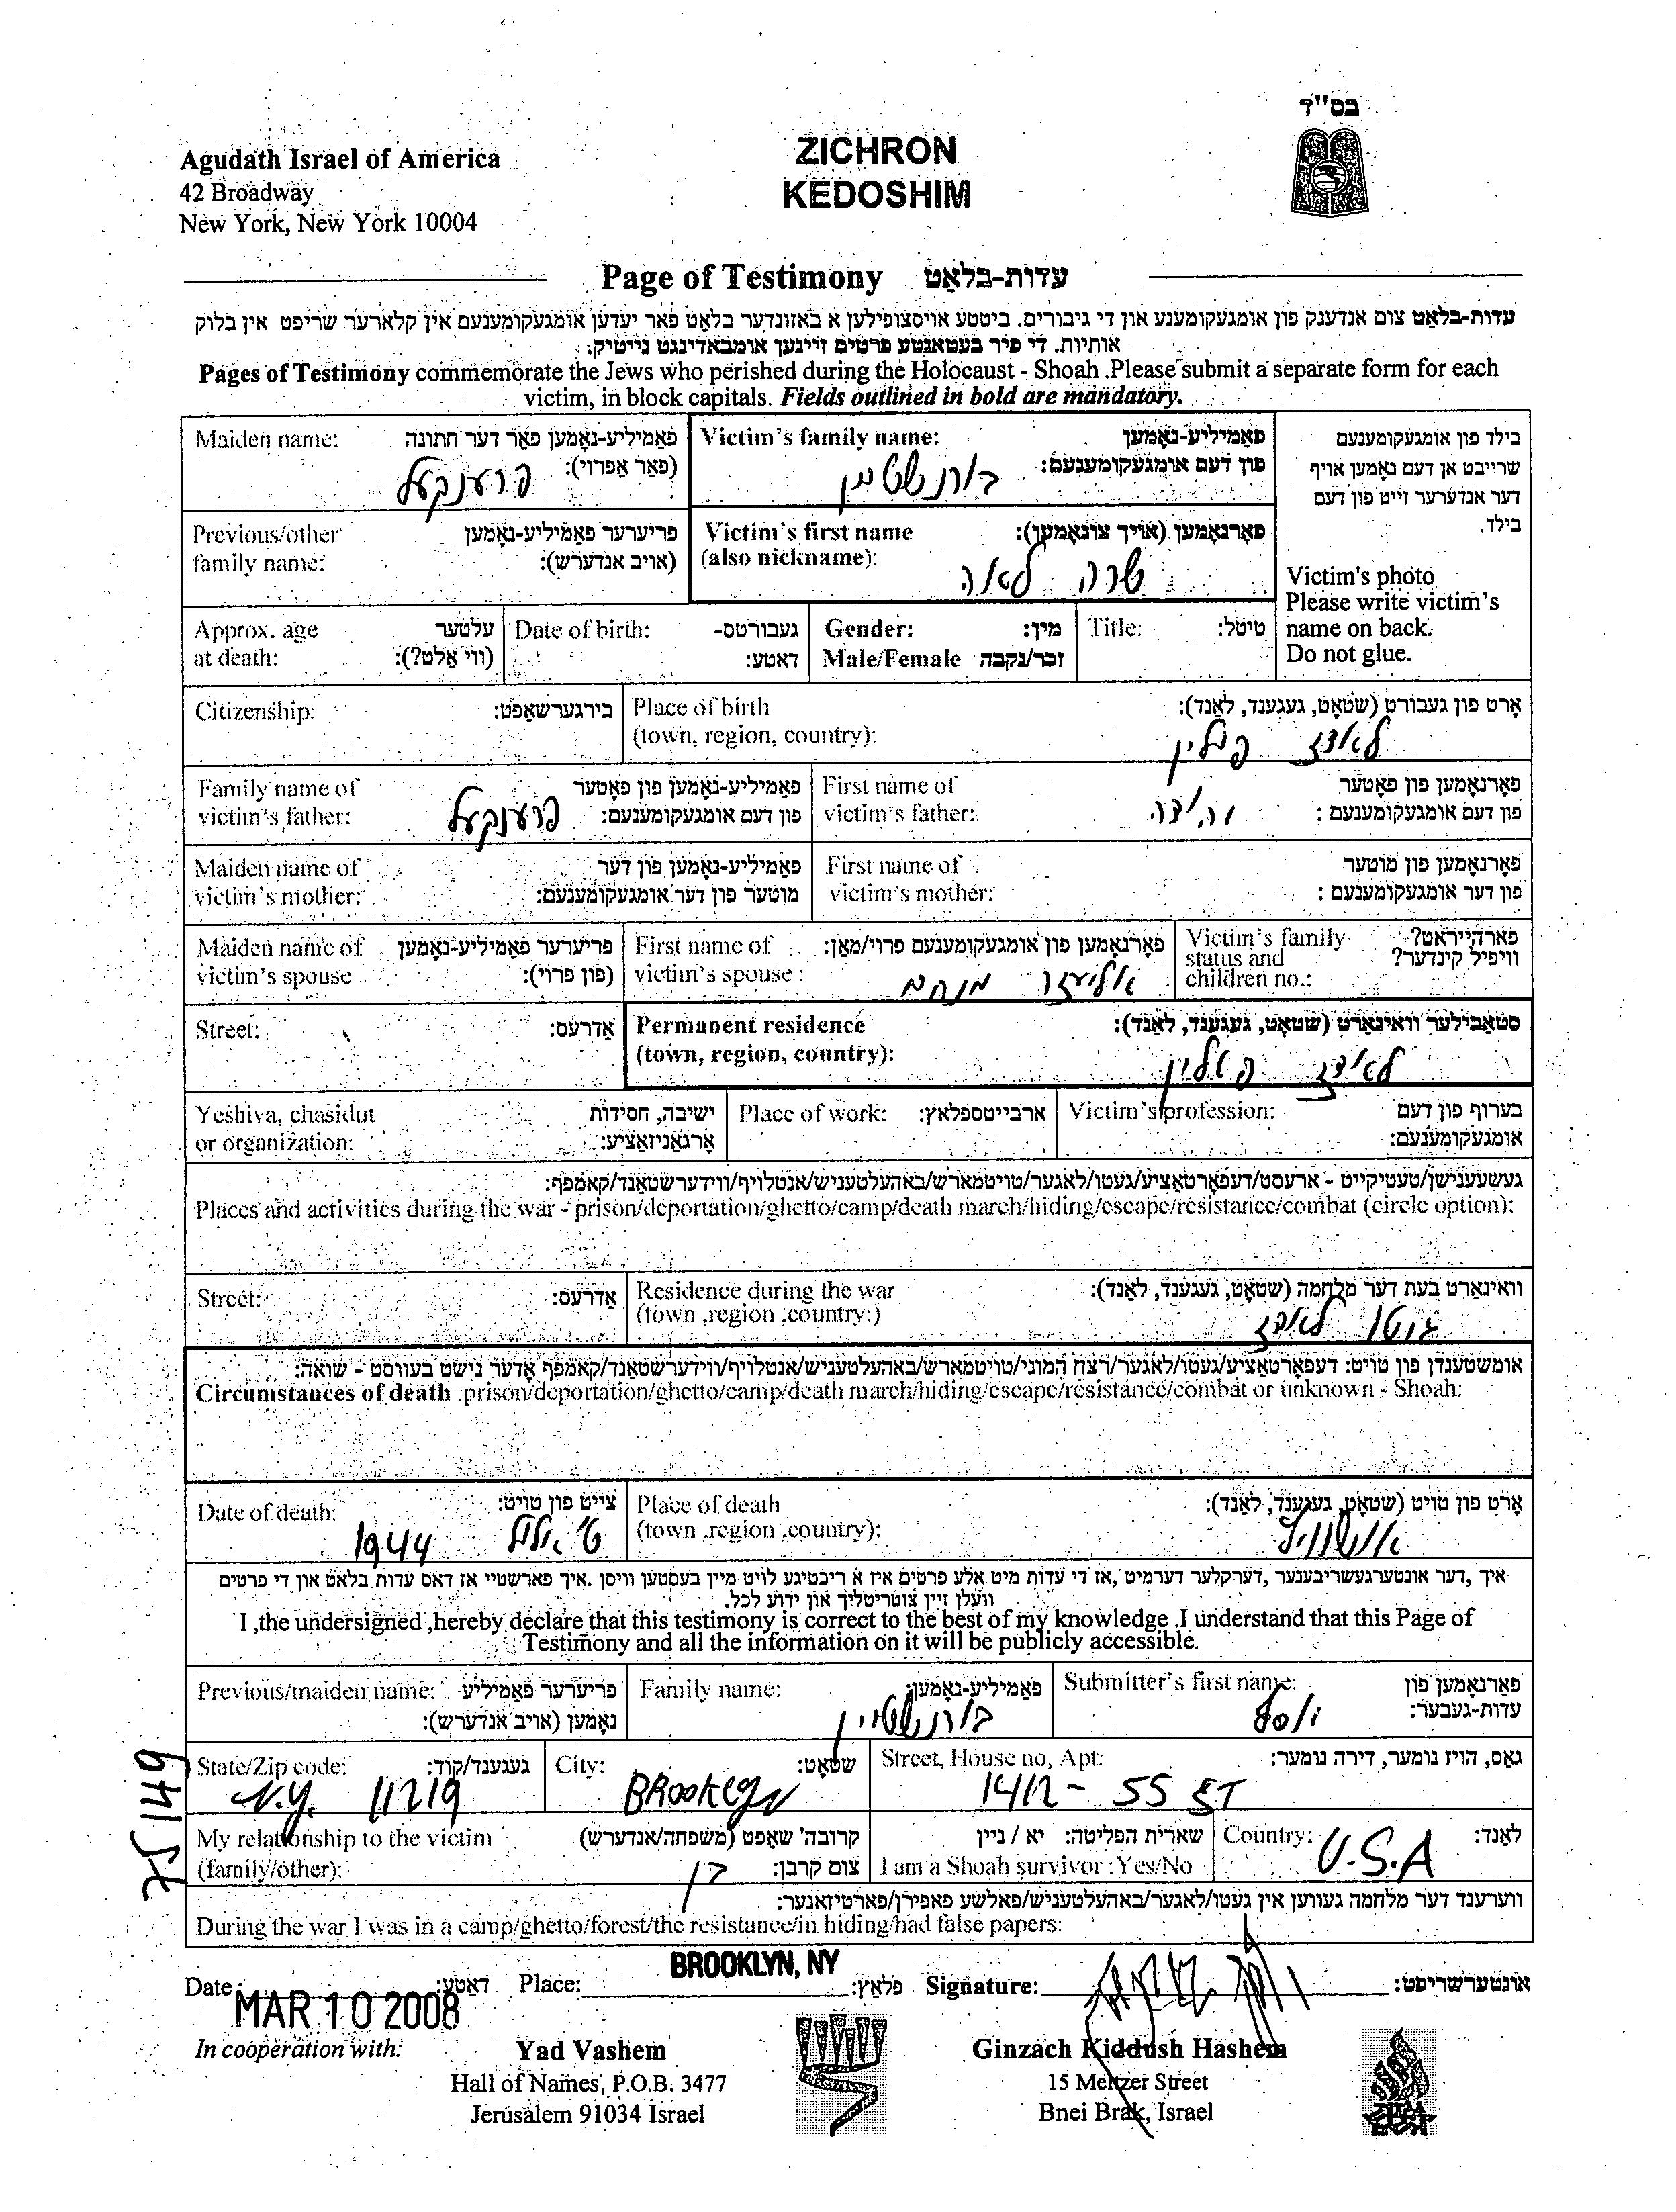 בס"ד
Agudath Israel of America
42 Broadway
New York, New York 10004
ZICHRON
KEDOSHIM
Page of Testimony עדות-בלאַט
עדות-בלאַט צום אנדענק פון אומגעקומענע און די גיבורים. ביטטע אויסצופילען א באזונדער בלאט פאר יעדען אומגעקומענעם אין קלארער שריפט אין בלוק
אותיות. די פיר בעטאנטע פרטים זיינען אומבאדינגט נייטיק.
Pages of Testimony commemorate the Jews who perished during the Holocaust - Shoah .Please submit a separate form for each
victim, in block capitals. Fields outlined in bold are mandatory.
Maiden name: פאַמיליע-נאָמען פאַר דער חתונה
(פאַר אַפרוי):
פרענקעל
Victim's family name: פאַמיליע-נאָמען
פון דעם אומגעקומענעם:
בורנשטיין
בילד פון אומגעקומענעם
שרייבט אן דעם נאָמען אויף
דער אנדערער זייט פון דעם
בילד.
Victim's photo
Please write victim's
name on back.
Do not glue.
Previous/other פריערער פאַמיליע-נאָמען
family name: (אויב אנדערש):
Victim's first name פאָרנאָמען (אויך צונאָמען):
(also nickname):
שרה לאה
Approx. age עלטער
at death: (ווי אַלט?):
Date of birth: געבורטס-
דאטע:
Gender: מין:
Male/Female זכר/נקבה
Title: טיטל:
Citizenship: בירגערשאַפט:
Place of birth אָרט פון געבורט (שטאָט, געגענד, לאַנד):
(town, region, country):
לאדז פולין
Family name of פאַמיליע-נאָמען פון פאָטער
victim's father: פון דעם אומגעקומענעם:
פרענקעל
First name of פאָרנאָמען פון פאָטער
victim's father: פון דעם אומגעקומענעם :
Maiden name of פאַמיליע-נאָמען פון דער
victim's mother: מוטער פון דער אומגעקומענעם:
First name of פאָרנאָמען פון מוטער
victim's mother: פון דער אומגעקומענעם :
Maiden name of פריערער פאַמיליע-נאָמען
victim's spouse (פון פרוי):
First name of פאָרנאָמען פון אומגעקומענעם פרוי/מאַן:
victim's spouse :
אליעזר מנחם
Victim's family פארהייראט?
status and וויפיל קינדער?
children no.:
Street: אַדרעס:
Permanent residence סטאַבילער וואינאָרט (שטאָט, געגענד, לאַנד):
(town, region, country):
לאדז פאלין
Yeshiva, chasidut ישיבה, חסידות
or organization: אָרגאַניזאַציע:
Place of work: ארבייטספלאץ:
Victim's profession: בערוף פון דעם
אומגעקומענעם:
געשעענישן/טעטיקייט - ארעסט/דעפאָרטאַציע/געטו/לאגער/טויטמארש/באהעלטעניש/אנטלויף/ווידערשטאַנד/קאמפף:
Places and activities during the war - prison/deportation/ghetto/camp/death march/hiding/escape/resistance/combat (circle option):
Street: אַדרעס:
Residence during the war וואינאַרט בעת דער מלחמה (שטאָט, געגענד, לאַנד):
(town ,region ,country:)
גיטו לאדז
אומשטענדן פון טויט: דעפאָרטאַציע/געטו/לאגער/רצח המוני/טויטמארש/באהעלטעניש/אנטלויף/ווידערשטאַנד/קאמפף אָדער נישט בעווסט - שואה:
Circumstances of death :prison/deportation/ghetto/camp/death march/hiding/escape/resistance/combat or unknown - Shoah:
Date of death: צייט פון טויט:
ט' אלול 1944
Place of death אָרט פון טויט (שטאָט, געגענד, לאַנד):
(town ,region ,country):
אושוויץ
איך ,דער אונטערגעשריבענער ,דערקלער דערמיט ,אז די עדות מיט אלע פרטים איז א ריכטיגע לויט מיין בעסטען וויסן .איך פארשטיי אז דאס עדות בלאט און די פרטים
וועלן זיין צוטריטליך און ידוע לכל.
I ,the undersigned ,hereby declare that this testimony is correct to the best of my knowledge .I understand that this Page of
Testimony and all the information on it will be publicly accessible.
Previous/maiden name: פריערער פאַמיליע
נאָמען (אויב אנדערש):
Family name: פאַמיליע-נאָמען:
בורנשטיין
Submitter's first name: פאָרנאָמען פון
עדות-געבער:
יוסף
State/Zip code: געגענד/קוד:
N.Y. 11219
City: שטאָט:
BROOKLYN
Street, House no, Apt: גאַס, הויז נומער, דירה נומער:
1412 - 55 ST
My relationship to the victim קרובה' שאַפט (משפחה/אנדערש)
(family/other): צום קרבן:
בן
שארית הפליטה: יא / ניין
I am a Shoah survivor :Yes/No
Country: לאַנד:
U.S.A
ווערענד דער מלחמה געווען אין געטו/לאגער/באהעלטעניש/פאלשע פאפירן/פארטיזאנער:
During the war I was in a camp/ghetto/forest/the resistance/in hiding/had false papers:
Date: MAR 10 2008 דאטע: Place: BROOKLYN, NY פלאַץ: Signature: אונטערשריפט:
In cooperation with:
Yad Vashem
Hall of Names, P.O.B. 3477
Jerusalem 91034 Israel
Ginzach Kiddush Hashem
15 Meltzer Street
Bnei Brak, Israel